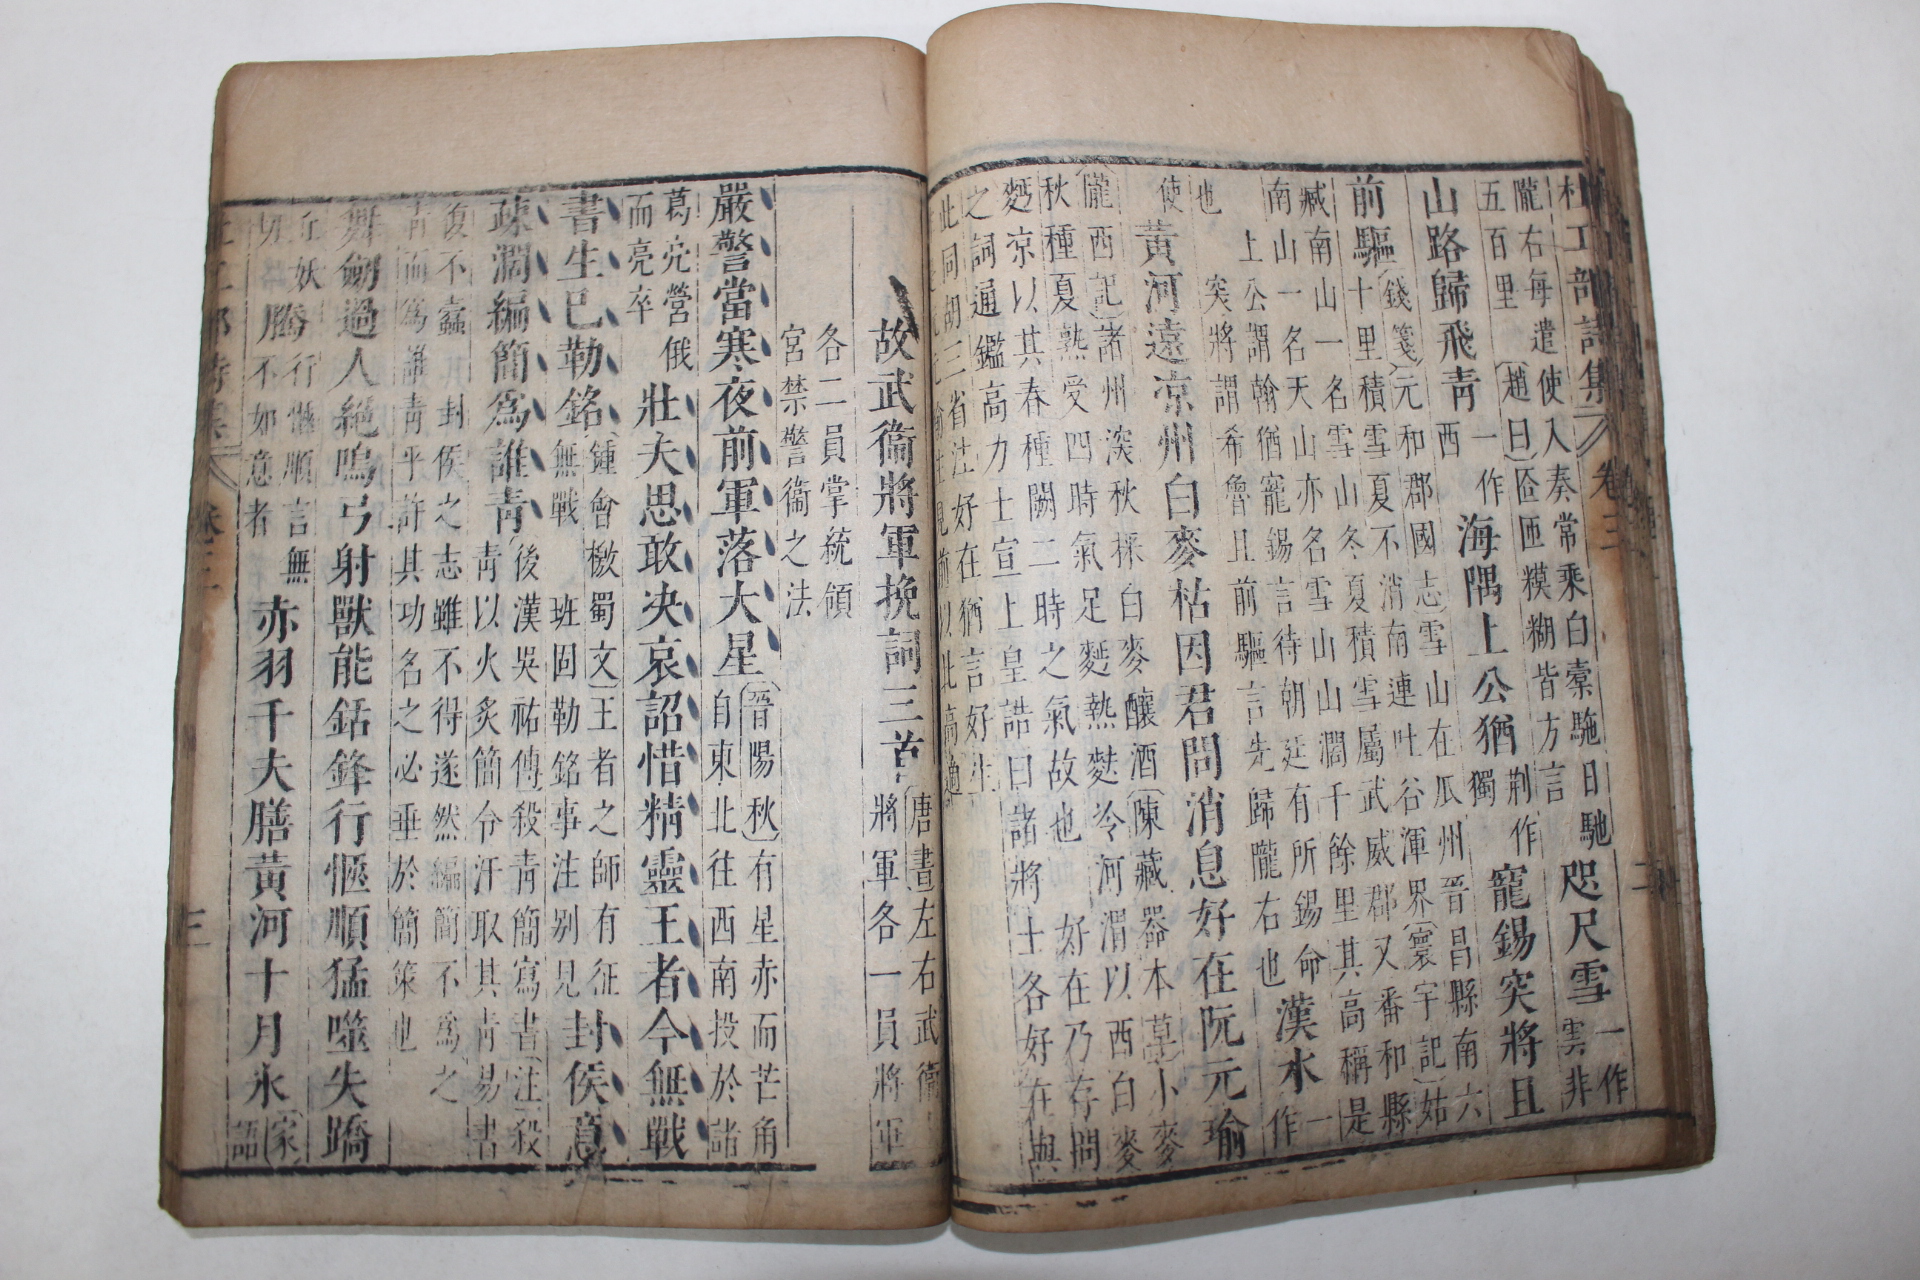 杜工部詩集 卷三 二
隴右每遣使入奏常乘白橐駞日馳
五百里(趙曰)匼匝糢糊皆方言
咫尺雪一作雲非
山路歸飛青一作西海隅上公猶荆作獨寵錫突將且
前驅(錢箋)元和郡國志雪山在瓜州晉昌縣南六
十里積雪夏不消南連吐谷渾界(寰宇記)姑
臧南山一名雪山冬夏積雪屬武威郡又番和縣
南山一名天山亦名雪山山濶千餘里其高稱是
也
上公謂翰猶寵錫言待朝廷有所錫命
突將謂希魯且前驅言先歸隴右也
漢水一作
使黃河遠涼州白麥枯因君問消息好在阮元瑜
(隴西記)諸州深秋採白麥釀酒(陳藏器本草)小麥
秋種夏熟受四時氣足麪熱麩冷河渭以西白麥
麪凉以其春種闕二時之氣故也 好在乃存問
之詞通鑑高力士宣上皇誥曰諸將士各好在與
此同胡三省注好在猶言好生
故武衞將軍挽詞三首(唐書)左右武衞
將軍各一員將軍
各二員掌統領
宮禁警衞之法
嚴警當寒夜前軍落大星(晉陽秋)有星赤而芒角
自東北往西南投於諸
葛亮營俄
而亮卒
壯夫思敢决哀詔惜精靈王者今無戰
書生已勒銘(鍾會檄蜀文)王者之師有征
無戰 班固勒銘事注别見
封侯意
疎濶編簡為誰青後漢吳祐傳殺青簡寫書(注)殺
青以火炙簡令汗取其青易書
復不蠹其封侯之志雖不得遂然編簡不為之
青而為誰青乎許其功名之必垂於簡策也
舞劒過人絕鳴弓射獸能銛鋒行愜順猛噬失蹻
丘妖
切
騰行愜順言無
不如意者
赤羽千夫膳黃河十月氷(家
語
工部詩集 卷三 三